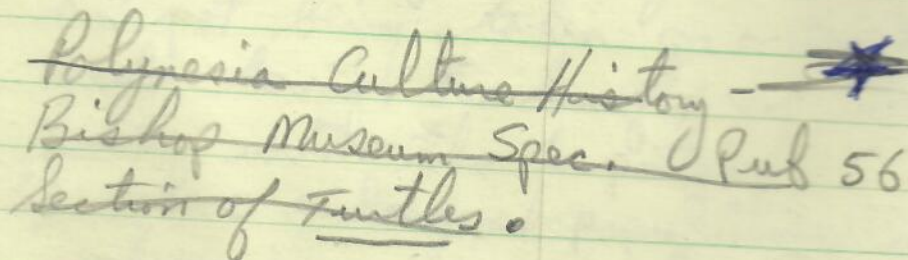 Polynesia Culture History -
Bishop Museum Spec. Pub 56
Section of Turtles.